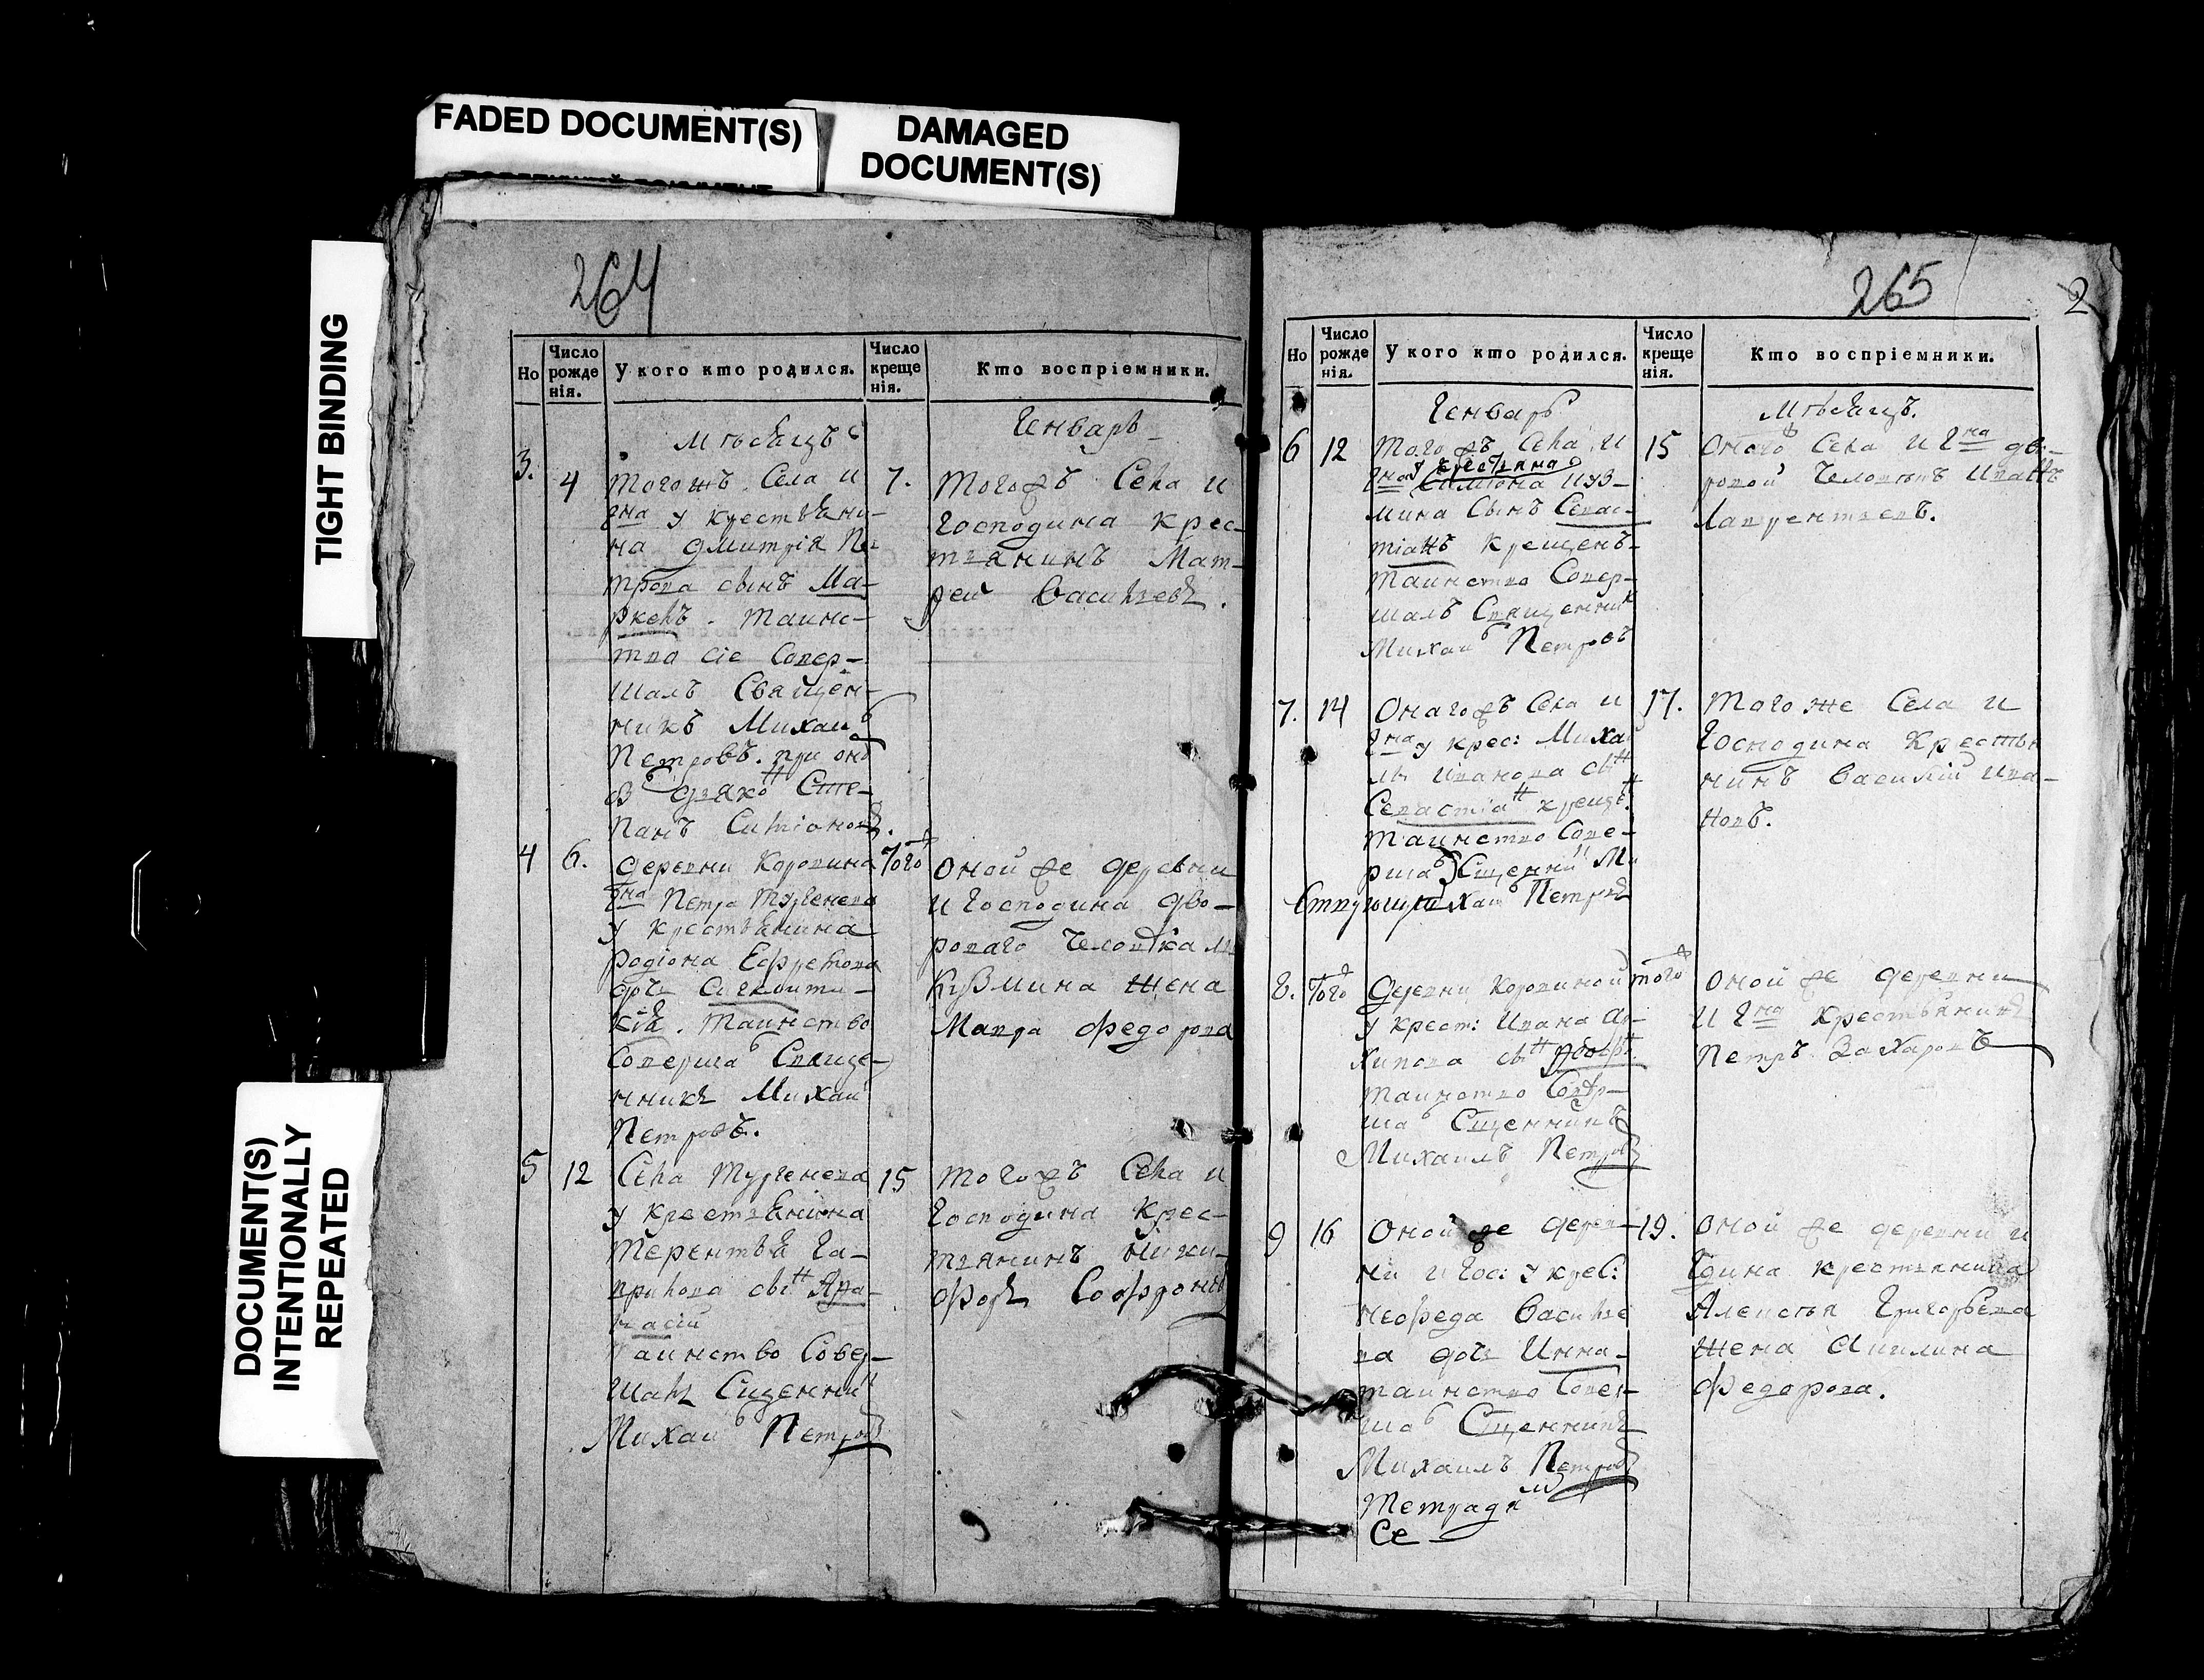 FADED DOCUMENT(S)
DAMAGED
DOCUMENT(S)
TIGHT BINDING
DOCUMENT(S)
INTENTIONALLY
REPEATED
264
Но
Число
рожде
нія.
У кого кто родился.
Число
креще
нія.
Кто воспріемники.
Мѣсяцъ
Генварь
3.
4
Тогожъ Села и
гна у крестьяни-
на Дмитрія Пе-
трова сынъ Ма-
ркелъ. Таинс-
тва сіе Совер-
шалъ Священ-
никъ Михаи
Петровъ. при
Сте-
панъ Симіоновъ.
7.
Тогожъ Села и
Господина крес-
тьянинъ Мат-
фей Васильевъ.
4
6.
деревни Коровина
гна Петра Тургенева
у крестьянина
Родіона Ефремова
дочь Синклити-
кія. Таинство
Соверша Свяще-
нникъ Михаи
Петровъ.
Того
Оной же деревни
и Господина дво-
роваго человѣка
Кузмина жена
Мавра Федорова
5
12
Села Тургенева
у крестьянина
Терентья Га-
врилова сын Афа-
насій
Таинство Совер-
шалъ Сщенни
Михаи Петровъ
15
Тогожъ Села и
Господина Крес-
тьянинъ Ники-
форъ Софроновъ
265
2
Но
Число
рожде
нія.
У кого кто родился.
Число
креще
нія.
Кто воспріемники.
Генварь
Мѣсяцъ.
6
12
Тогожъ Села и
гна у крестьяна
Симіона Куз-
мина Сынъ Севас-
тіанъ крещенъ-
Таинство Совер-
шалъ Священник
Михаи Петровъ
15
Оного Села и гна дво-
ровой человѣкъ Иванъ
Лаврентьевъ.
7.
14
Онагожъ Села и
гна у крес: Михаи
ла Иванова сын
Севастіан креще.
Таинство Сове-
рша Сщенни
Михаи Петровъ
17.
Того же Села и
Господина Крестья
нинъ Василій Ива-
новъ.
8.
Того
Деревни Коровиной
у крест: Ивана Ар-
хипова сын
Таинство Совер-
ша Сщенникъ
Михаилъ Петровъ
того
Оной же деревни
и гна Крестьянинъ
Петръ Захаровъ
9
16
Оной же дерев-
ни и Гос: у крес:
Нефеда Василье
ва дочь Инна-
таинство Совер-
ша Сщенникъ
Михаилъ Петровъ
Тетради
Се
19.
Оной же деревни и
Гдина крестьянина
Алексѣя Григорьева
жена Акилина
Федорова.